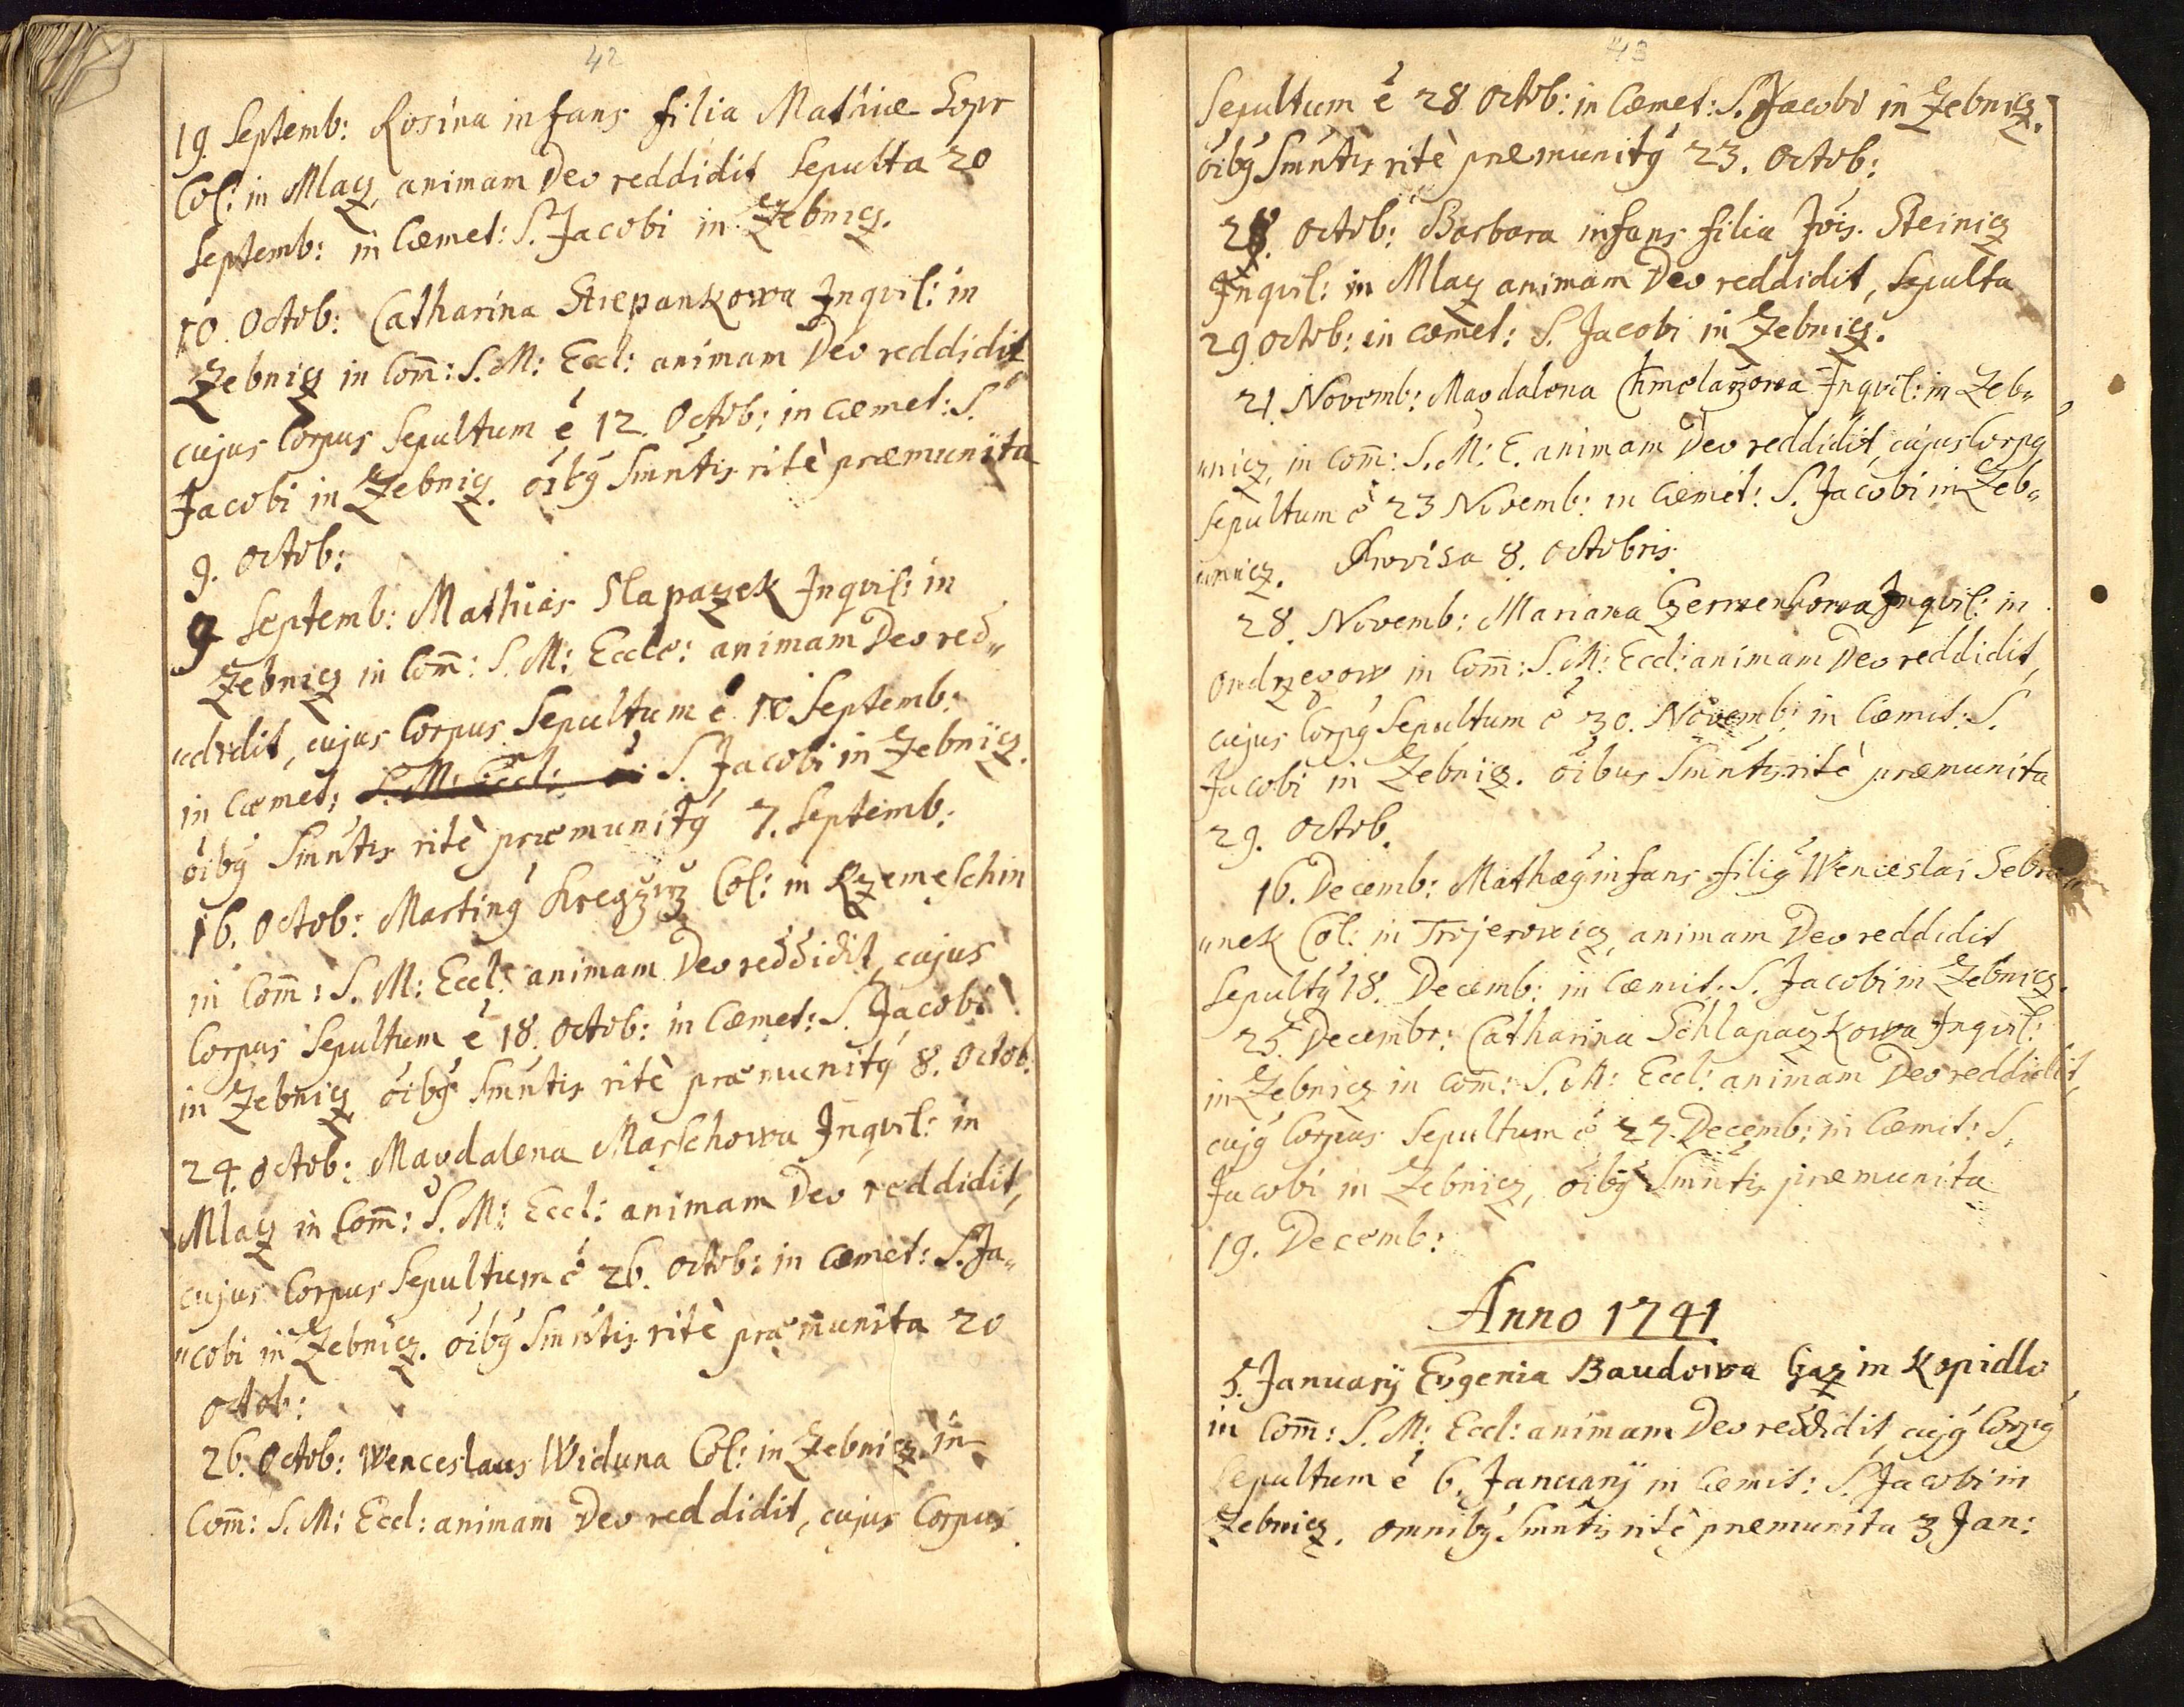 42
19. Septemb: Rosina infans filia Mathiæ Sopr
Col: in Mlacz, animam Deo reddidit Sepulta 20
Septemb: in Cœmet: S. Jacobi in Zebnicz.
10. Octob: Catharina Stiepankowa Inqvil: in
Zebnicz in Com̄: S. M: Eccl: animam Deo reddidit
cujus Corpus Sepultum ē 12. Octob: in Cœmet: S.
Jacobi in Zebnicz. oibꝰ Smntis ritè præmunita
9. Octob:
9 Septemb: Mathias Slapaczek Inqvil: in
Zebnicz in Com̄: S. M: Eccle: animam Deo red„
„didit, cujus Corpus Sepultum ē 10 Septemb:
in Cœmet: S. M: Eccl: S. Jacobi in Zebnicz.
oibꝰ Smntis ritè præmunitꝰ 7. Septemb:
16. Octob: Martinꝰ Col: in Rzemeschin
in Com̄: S. M: Eccl: animam Deo reddidit, cujus
Corpus Sepultum ē 18. Octob: in Cœmet: S. Jacobi
in Zebnicz oibꝰ Smntis ritè præmunitꝰ 8. Octob:
24. Octob: Magdalena Marschowa Inqvil: in
Mlacz in Com̄: S. M: Eccl: animam Deo reddidit,
cujus Corpus Sepultum ē 26. Octob: in Cœmet: S. Ja„
„cobi in Zebnicz. oibꝰ Smntis ritè præmunita 20
Octob:
26. Octob: Wenceslaus Widuna Col: in Zebnicz in
Com̄: S. M: Eccl: animam Deo reddidit, cujus Corpus
43
Sepultum ē 28 Octob: in Cœmet: S. Jacobi in Zebnicz.
oibꝰ Smntis ritè præmunitꝰ 23. Octob:
28. Octob: Barbara infans filia Jois Steinicz
Inqvil: in Mlacz animam Deo reddidit, Sepulta
29 Octob: in cœmet: S. Jacobi in Zebnicz.
21. Novemb: Magdalena Chmelarzowa Inqvil: in Zeb„
„nicz, in Com̄: S. M: E. animam Deo reddidit, cujus Corpꝰ
Sepultum ē 23 Novemb: in Cœmet: S. Jacobi in Zeb„
„nicz. Provisa 8. Octobris.
28. Novemb: Mariana Czerwenkowa Inqvil: in
Ondrzegow in Com̄: S. M: Eccl: animam Deo reddidit,
cujus Corpꝰ Sepultum ē 30. Novemb: in Cœmet: S.
Jacobi in Zebnicz. oibus Smntis ritè præmunita
29. Octob.
16. Decemb: Mathæꝰ infans filiꝰ Wenceslai
„nek Col: in Trojerowicz, animam Deo reddidit
Sepultꝰ 18. Decemb: in Cœmit: S. Jacobi in Zebnicz.
25. Decembr: Catharina Schlapaczkowa Inqvil:
in Zebnicz in Com̄: S. M: Eccl: animam Deo reddidit,
cujꝰ Corpus Sepultum ē 27. Decemb: in Cœmit: S.
Jacobi in Zebnicz, oibꝰ Smntis præmunita
19. Decemb:
Anno 1741
5. Januarij Eugenia Baudowa in Kopidlo
in Com̄: S. M: Eccl: animam Deo reddidit, cujꝰ Corpꝰ
Sepultum ē 6. Januarij in Cœmit: S. Jacobi in
Zebnicz. omnibꝰ Smntis ritè præmunita 3 Jan: